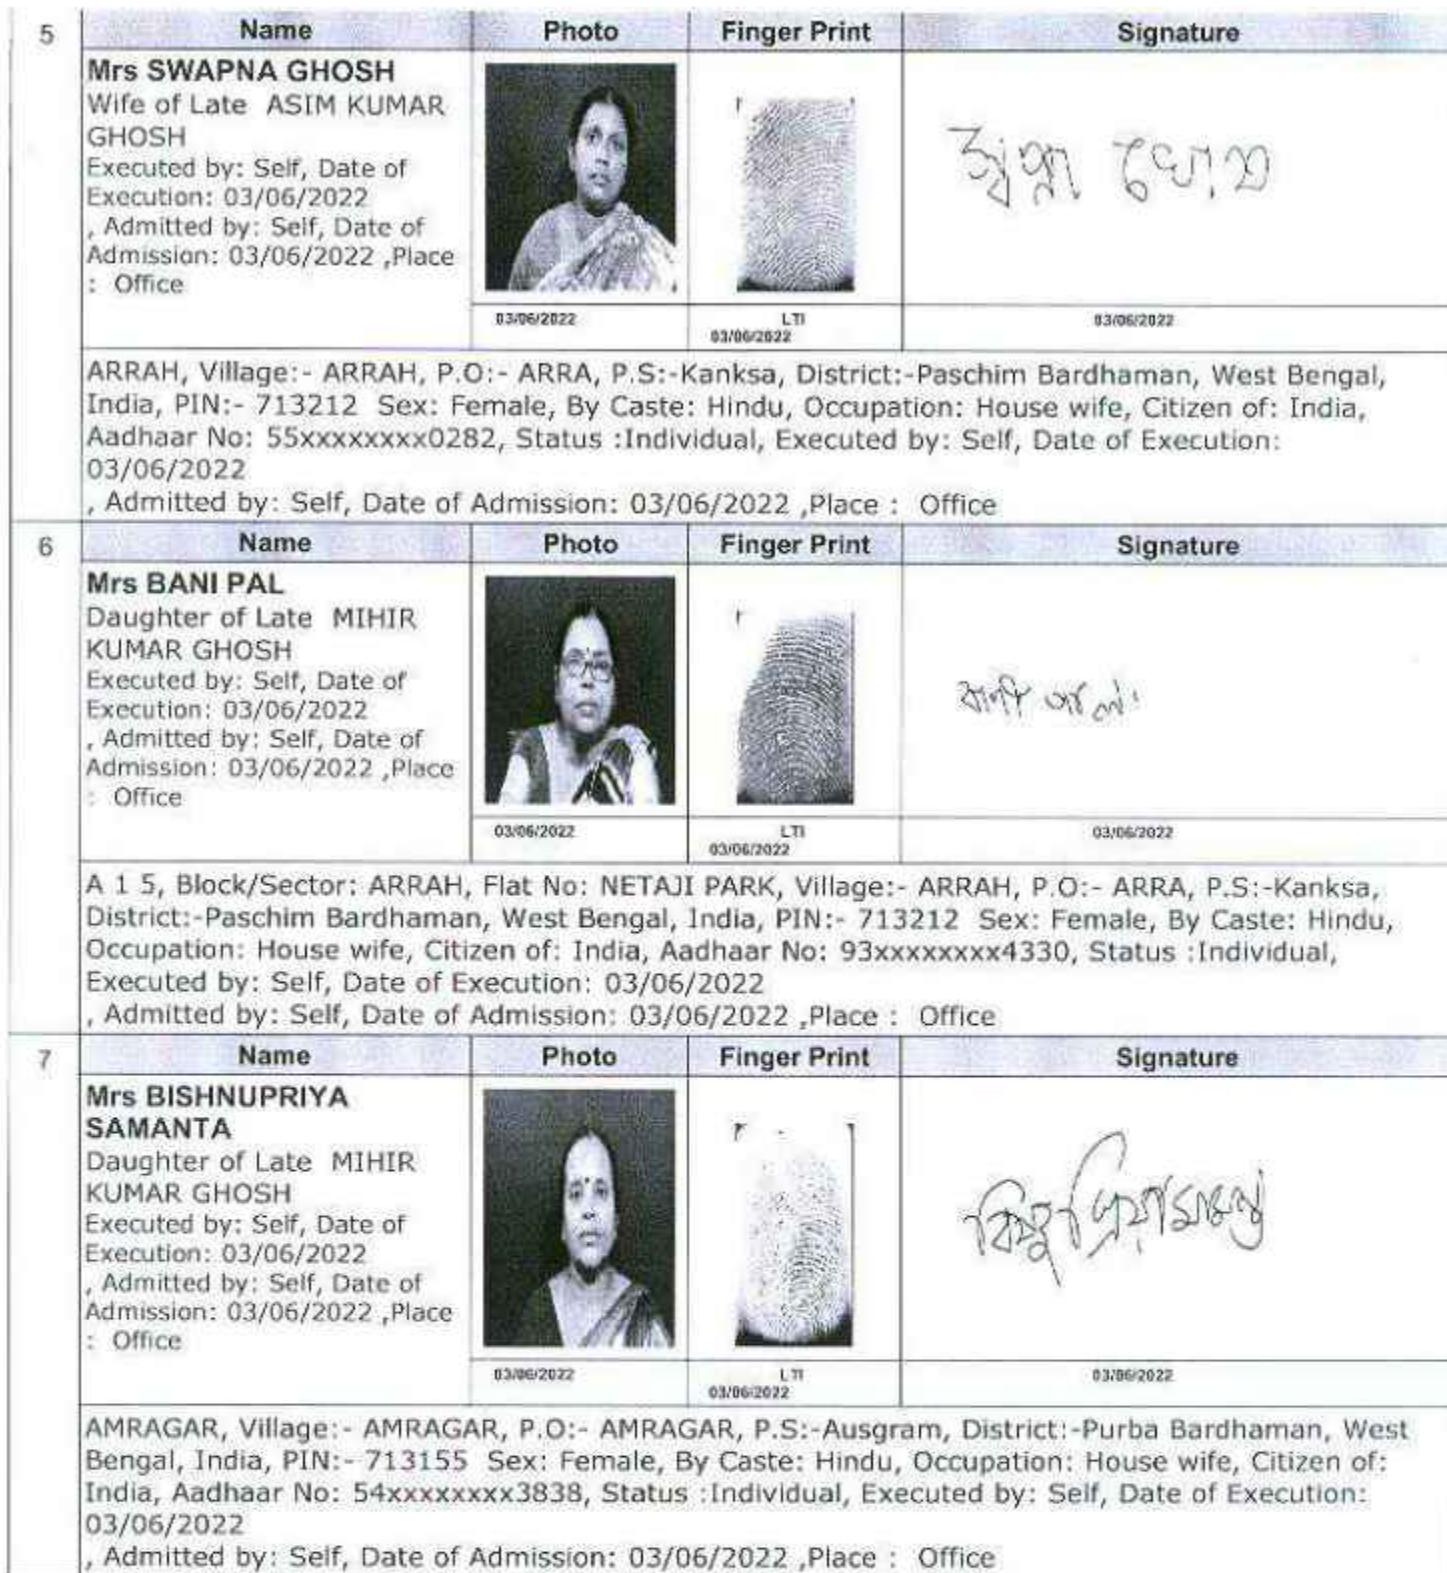 5
Name Photo Finger Print Signature
Mrs SWAPNA GHOSH
Wife of Late ASIM KUMAR
GHOSH
Executed by: Self, Date of
Execution: 03/06/2022
, Admitted by: Self, Date of
Admission: 03/06/2022 ,Place
: Office
স্বপ্না ঘোষ
03/06/2022 LTI 03/06/2022
03/06/2022
ARRAH, Village:- ARRAH, P.O:- ARRA, P.S:-Kanksa, District:-Paschim Bardhaman, West Bengal,
India, PIN:- 713212 Sex: Female, By Caste: Hindu, Occupation: House wife, Citizen of: India,
Aadhaar No: 55xxxxxxxx0282, Status :Individual, Executed by: Self, Date of Execution:
03/06/2022
, Admitted by: Self, Date of Admission: 03/06/2022 ,Place : Office
6
Name Photo Finger Print Signature
Mrs BANI PAL
Daughter of Late MIHIR
KUMAR GHOSH
Executed by: Self, Date of
Execution: 03/06/2022
, Admitted by: Self, Date of
Admission: 03/06/2022 ,Place
: Office
বানী পাল
03/06/2022 LTI 03/06/2022
03/06/2022
A 1 5, Block/Sector: ARRAH, Flat No: NETAJI PARK, Village:- ARRAH, P.O:- ARRA, P.S:-Kanksa,
District:-Paschim Bardhaman, West Bengal, India, PIN:- 713212 Sex: Female, By Caste: Hindu,
Occupation: House wife, Citizen of: India, Aadhaar No: 93xxxxxxxx4330, Status :Individual,
Executed by: Self, Date of Execution: 03/06/2022
, Admitted by: Self, Date of Admission: 03/06/2022 ,Place : Office
7
Name Photo Finger Print Signature
Mrs BISHNUPRIYA
SAMANTA
Daughter of Late MIHIR
KUMAR GHOSH
Executed by: Self, Date of
Execution: 03/06/2022
, Admitted by: Self, Date of
Admission: 03/06/2022 ,Place
: Office
বিষ্ণুপ্রিয়া সামন্ত
03/06/2022 LTI 03/06/2022
03/06/2022
AMRAGAR, Village:- AMRAGAR, P.O:- AMRAGAR, P.S:-Ausgram, District:-Purba Bardhaman, West
Bengal, India, PIN:- 713155 Sex: Female, By Caste: Hindu, Occupation: House wife, Citizen of:
India, Aadhaar No: 54xxxxxxxx3838, Status :Individual, Executed by: Self, Date of Execution:
03/06/2022
, Admitted by: Self, Date of Admission: 03/06/2022 ,Place : Office